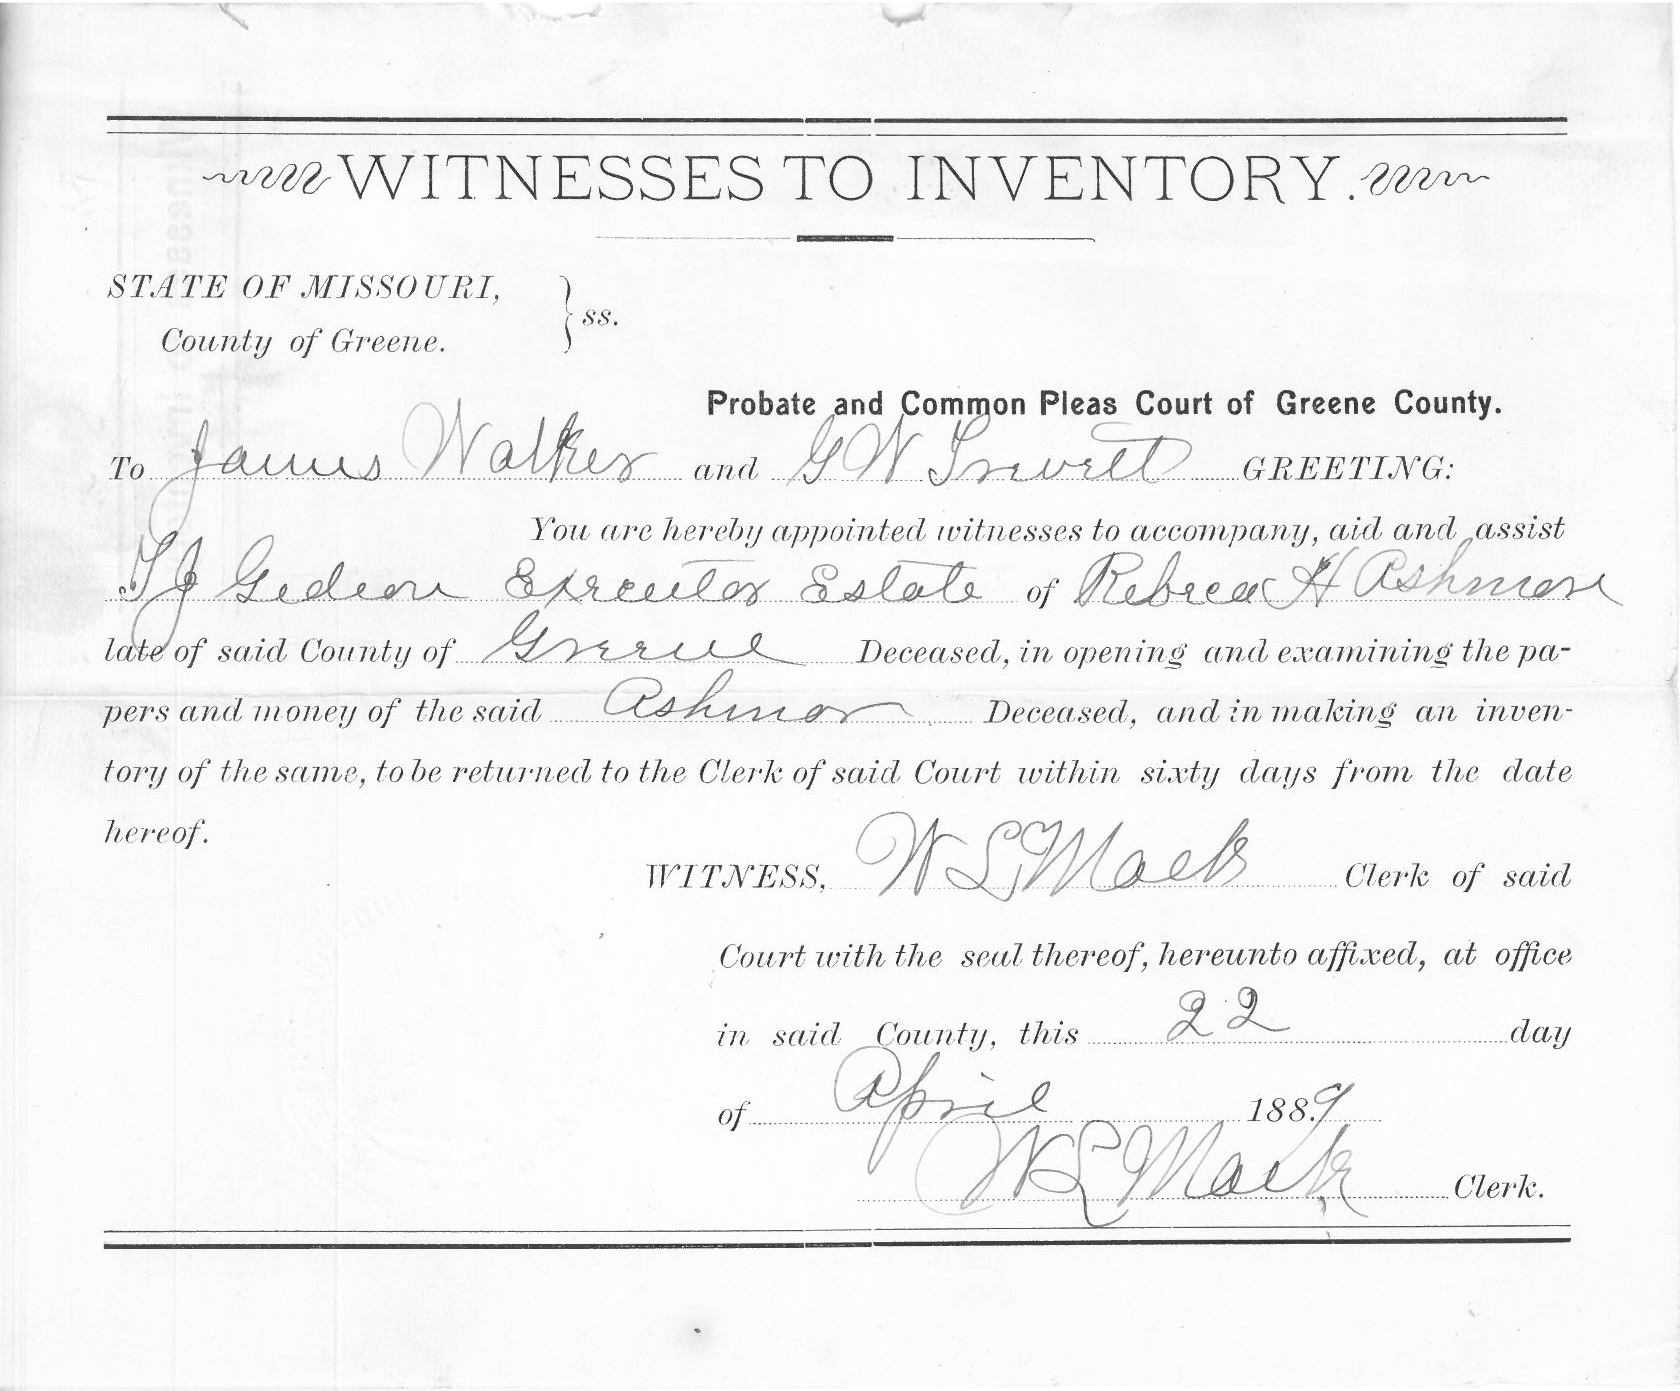 WITNESSES TO INVENTORY.
STATE OF MISSOURI,
County of Greene.
} ss.
Probate and Common Pleas Court of Greene County.
To James Walker and G W Trevett GREETING:
You are hereby appointed witnesses to accompany, aid and assist
T J Gideon Executor Estate of Rebeca H Ashmore
late of said County of Greene Deceased, in opening and examining the pa-
pers and money of the said Ashmor Deceased, and in making an inven-
tory of the same, to be returned to the Clerk of said Court within sixty days from the date
hereof.
WITNESS, W L Mack Clerk of said
Court with the seal thereof, hereunto affixed, at office
in said County, this 22 day
of April 1889
W L Mack Clerk.